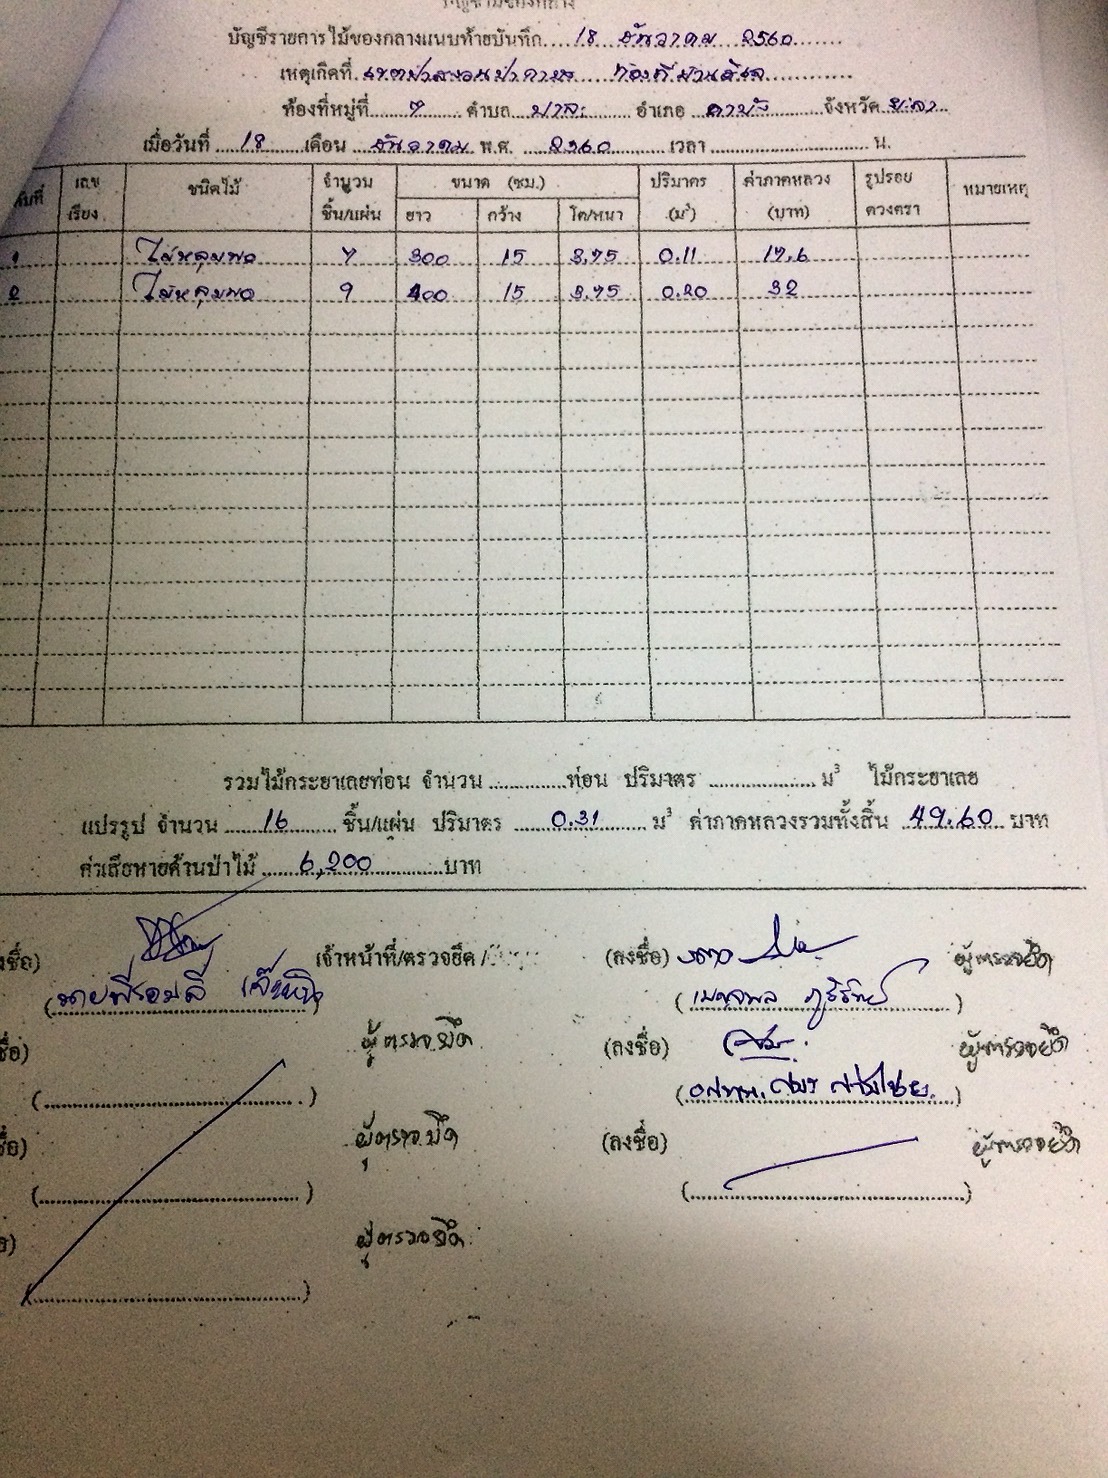 บัญชีรายการไม้ของกลางแนบท้ายบันทึก 18 ธันวาคม 2560
เหตุเกิดที่ เขตป่าสงวนป่ากาบัง ท้องที่บ้าน
ท้องที่หมู่ที่ 7 ตำบล บาละ อำเภอ กาบัง จังหวัด ยะลา
เมื่อวันที่ 18 เดือน ธันวาคม พ.ศ. 2560 เวลา น.
เลขเรียง ชนิดไม้ จำนวน ชิ้น/แผ่น ขนาด (ซม.) ปริมาตร (ม³) ค่าภาคหลวง (บาท) รูปรอย ดวงตรา หมายเหตุ
ยาว กว้าง โต/หนา
1 ไม้หลุมพอ 7 300 15 3.75 0.11 17.6
2 ไม้หลุมพอ 9 400 15 3.75 0.20 32
รวมไม้กระยาเลยท่อน จำนวน ท่อน ปริมาตร ม³ ไม้กระยาเลย
แปรรูป จำนวน 16 ชิ้น/แผ่น ปริมาตร 0.31 ม³ ค่าภาคหลวงรวมทั้งสิ้น 49.60 บาท
ค่าเสียหายด้านป่าไม้ 6,200 บาท
เจ้าหน้าที่/ตรวจยึด (ลงชื่อ) ผู้ตรวจยึด
ผู้ตรวจยึด (ลงชื่อ) ผู้ตรวจยึด
ผู้ตรวจยึด (ลงชื่อ) ผู้ตรวจยึด
ผู้ตรวจยึด